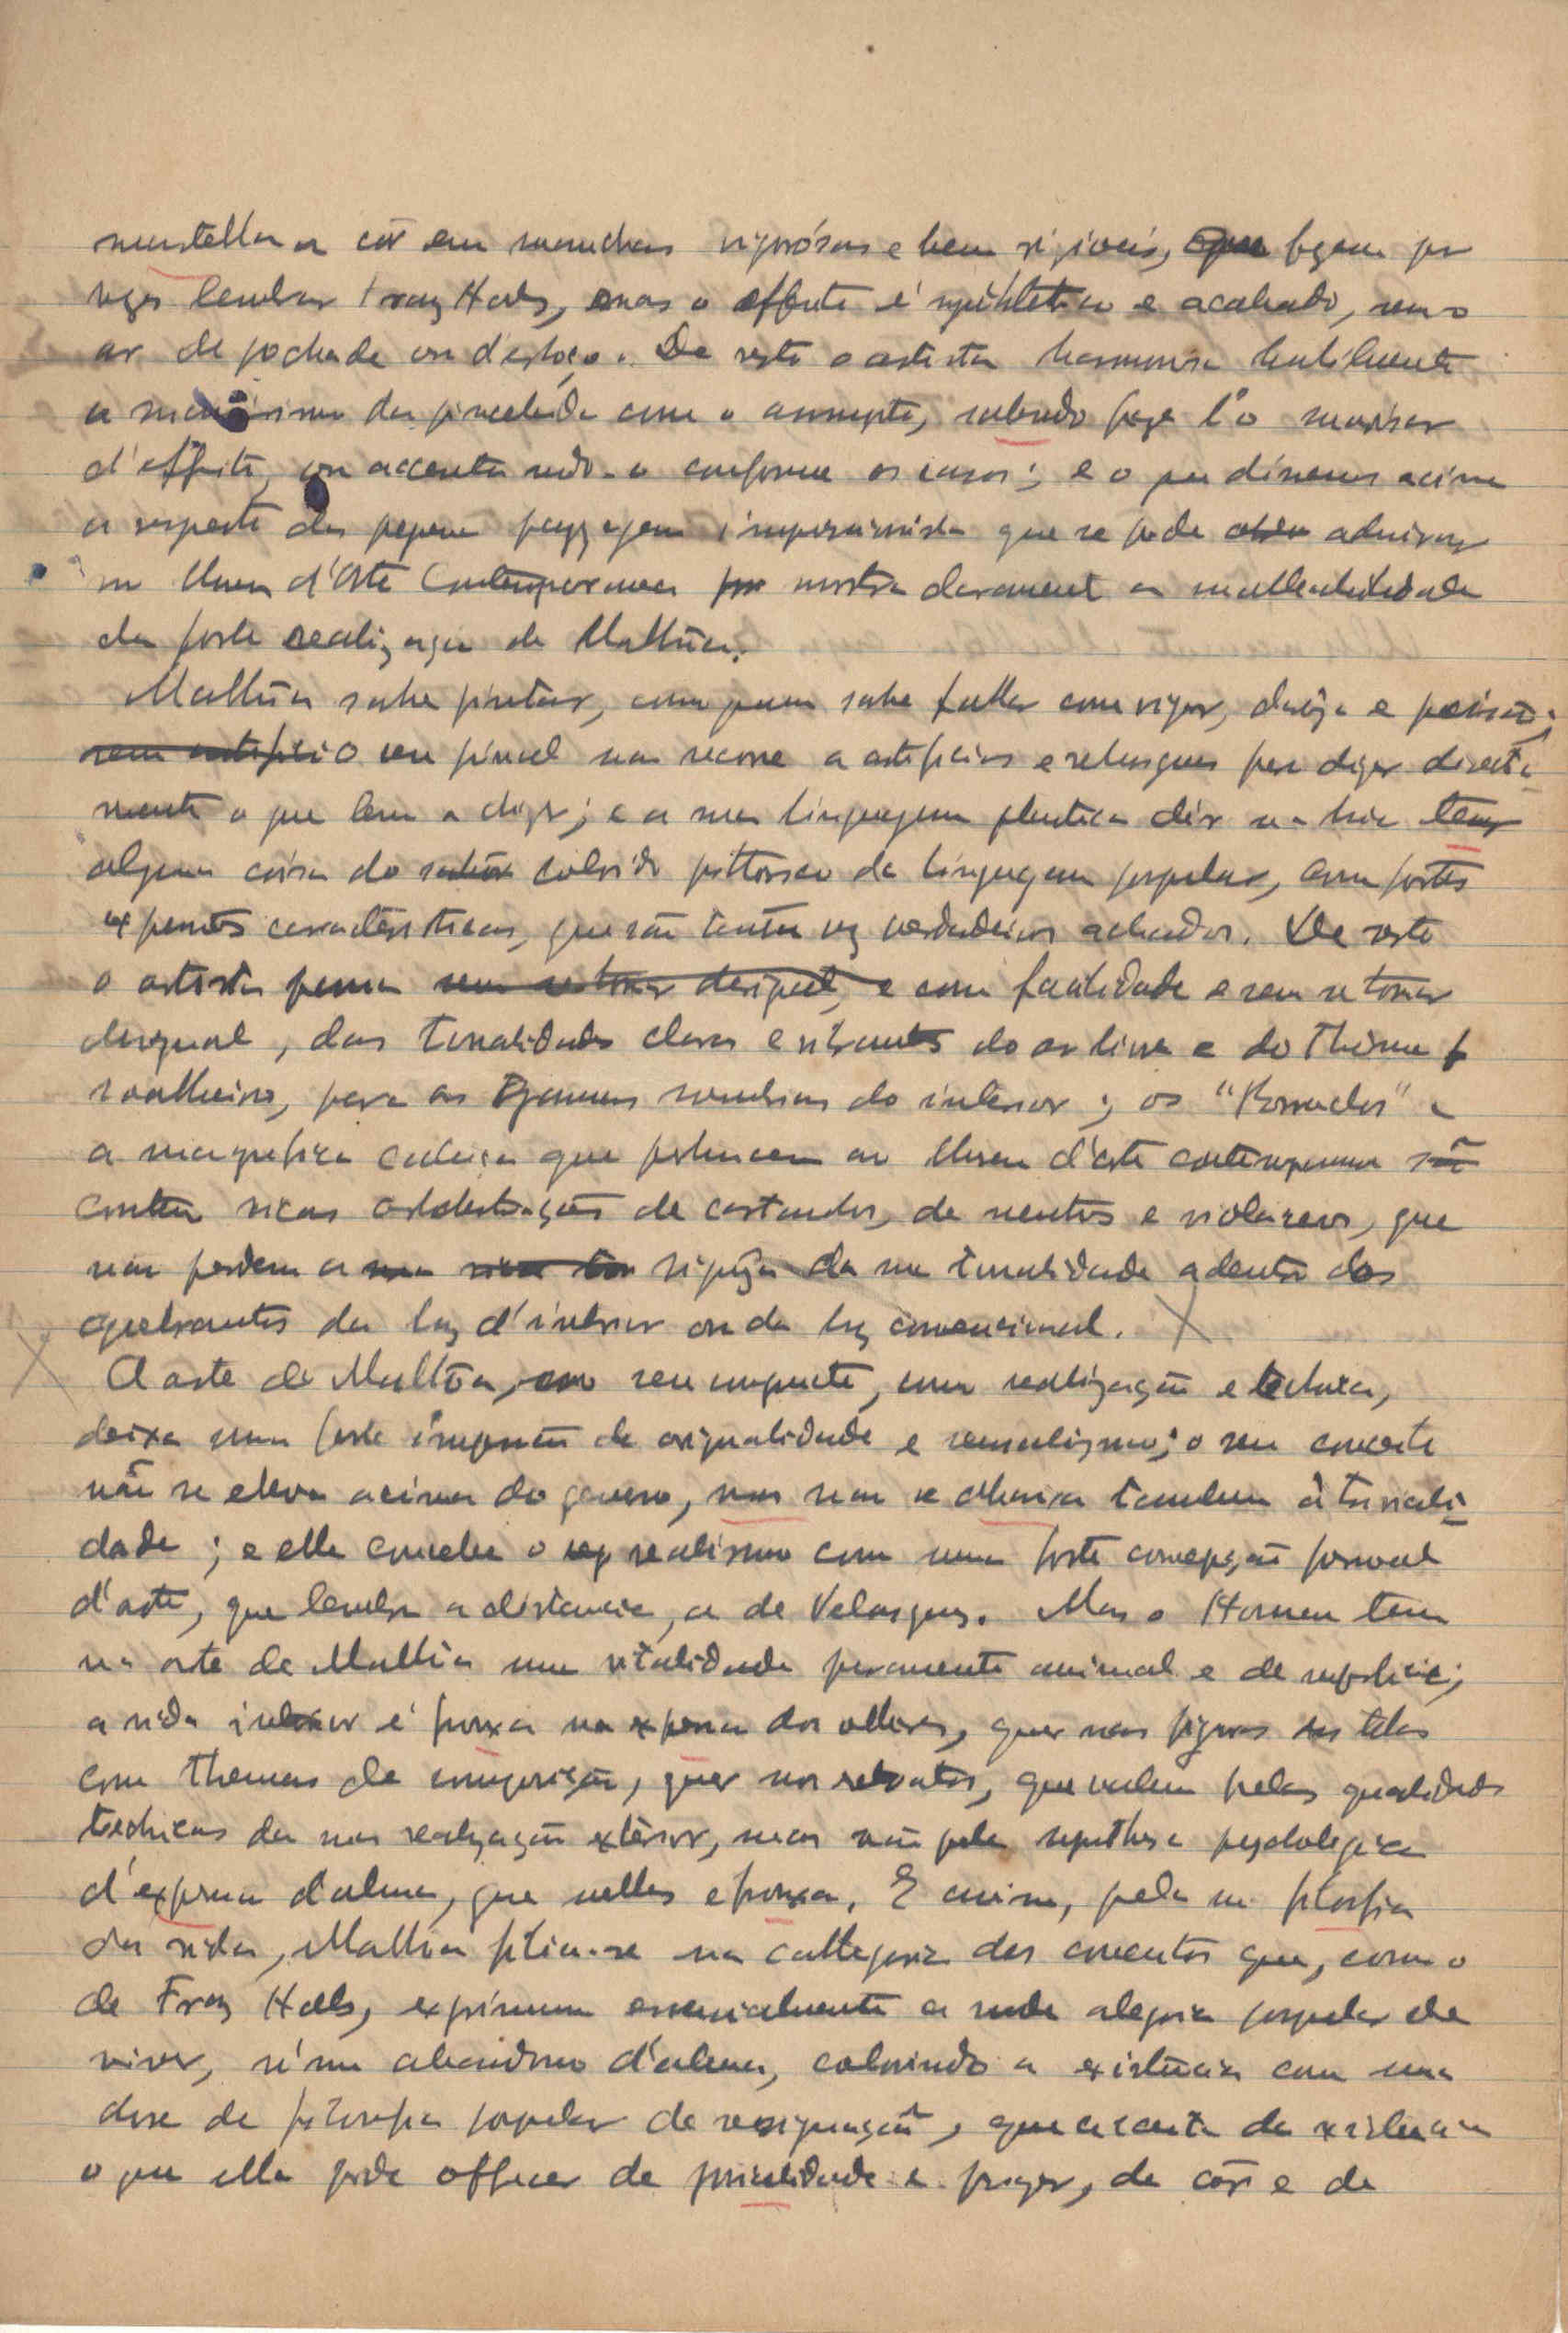 a côr em manchas vigorósas e bem visiveis, que fazem por
vezes lembrar Franz Hals, mas o effeito é synthetico e acabado, sem o
ar de pochade ou d'esboço. De resto o artista harmonisa habilmente
o da pincelada com o assumpto, sabendo fazel-o
d'effeito, ou accentuando-o conforme os casos; e o que dissemos acima
a respeito da pequena payzagem impressionista que se pode admirar
no Museu d'Arte Contemporanea mostra claramente a malleabilidade
da forte realização de Malhôa.
Malhôa sabe pintar, como quem sabe fallar com vigor, clareza e precisão;
sem artificio O seu pincel não recorre a artificios e rebusques para dizer directa-
mente o que tem a dizer; e a sua linguagem plastica dir-se-hia tem
alguma coisa do sabôr colorido pittoresco da linguagem popular, com fortes
expressões caracteristicas, que são tanta vez verdadeiros achados. De resto
o artista passa sem se tornar desigual, e com facilidade e sem se tornar
desigual, das tonalidades claras e vibrantes do ar livre e do thema
soalheiro, para as gammas sombrias do interior; os "Bormachos" e
a magnifica cabeça que pertencem ao Museu d'arte contemporanea são
ricas orchestrações de castanhos, de neutros e violaceos, que
não perdem a sua da sua tonalidade adentro dos
quebrantos da luz d'interior ou da luz convencional.
A arte de Malhôa, no seu conjuncto, como realização e technica,
deixa uma forte impressão de originalidade e sensualismo; o seu conceito
não se eleva acima do genero, mas não se abaixa tambem á triviali-
dade; e elle concebe o seu realismo com uma forte concepção pessoal
d'arte, que lembra a distancia, a de Velasquez. Mas o Homem tem
na arte de Malhôa uma vitalidade puramente animal e de superficie;
a vida interior é frouxa na expressão dos olhares, quer nas figuras das telas
com themas de composição, quer nos retratos, que valem pelas qualidades
technicas da sua realização exterior, mas não pela synthese psychologica
d'expressão d'alma, que nelles é frouxa. E assim, pela sua filosofia
da vida, Malhôa filia-se na cathegoria dos conceitos que, como o
de Franz Hals, exprimem essencialmente a rude alegria popular de
viver, n'um abandono d'alma, colorindo a existencia com uma
dose de filosofia popular de resignação, que acceita da existencia
o que ella pode offrecer de jovialidade e prazer, de côr e de